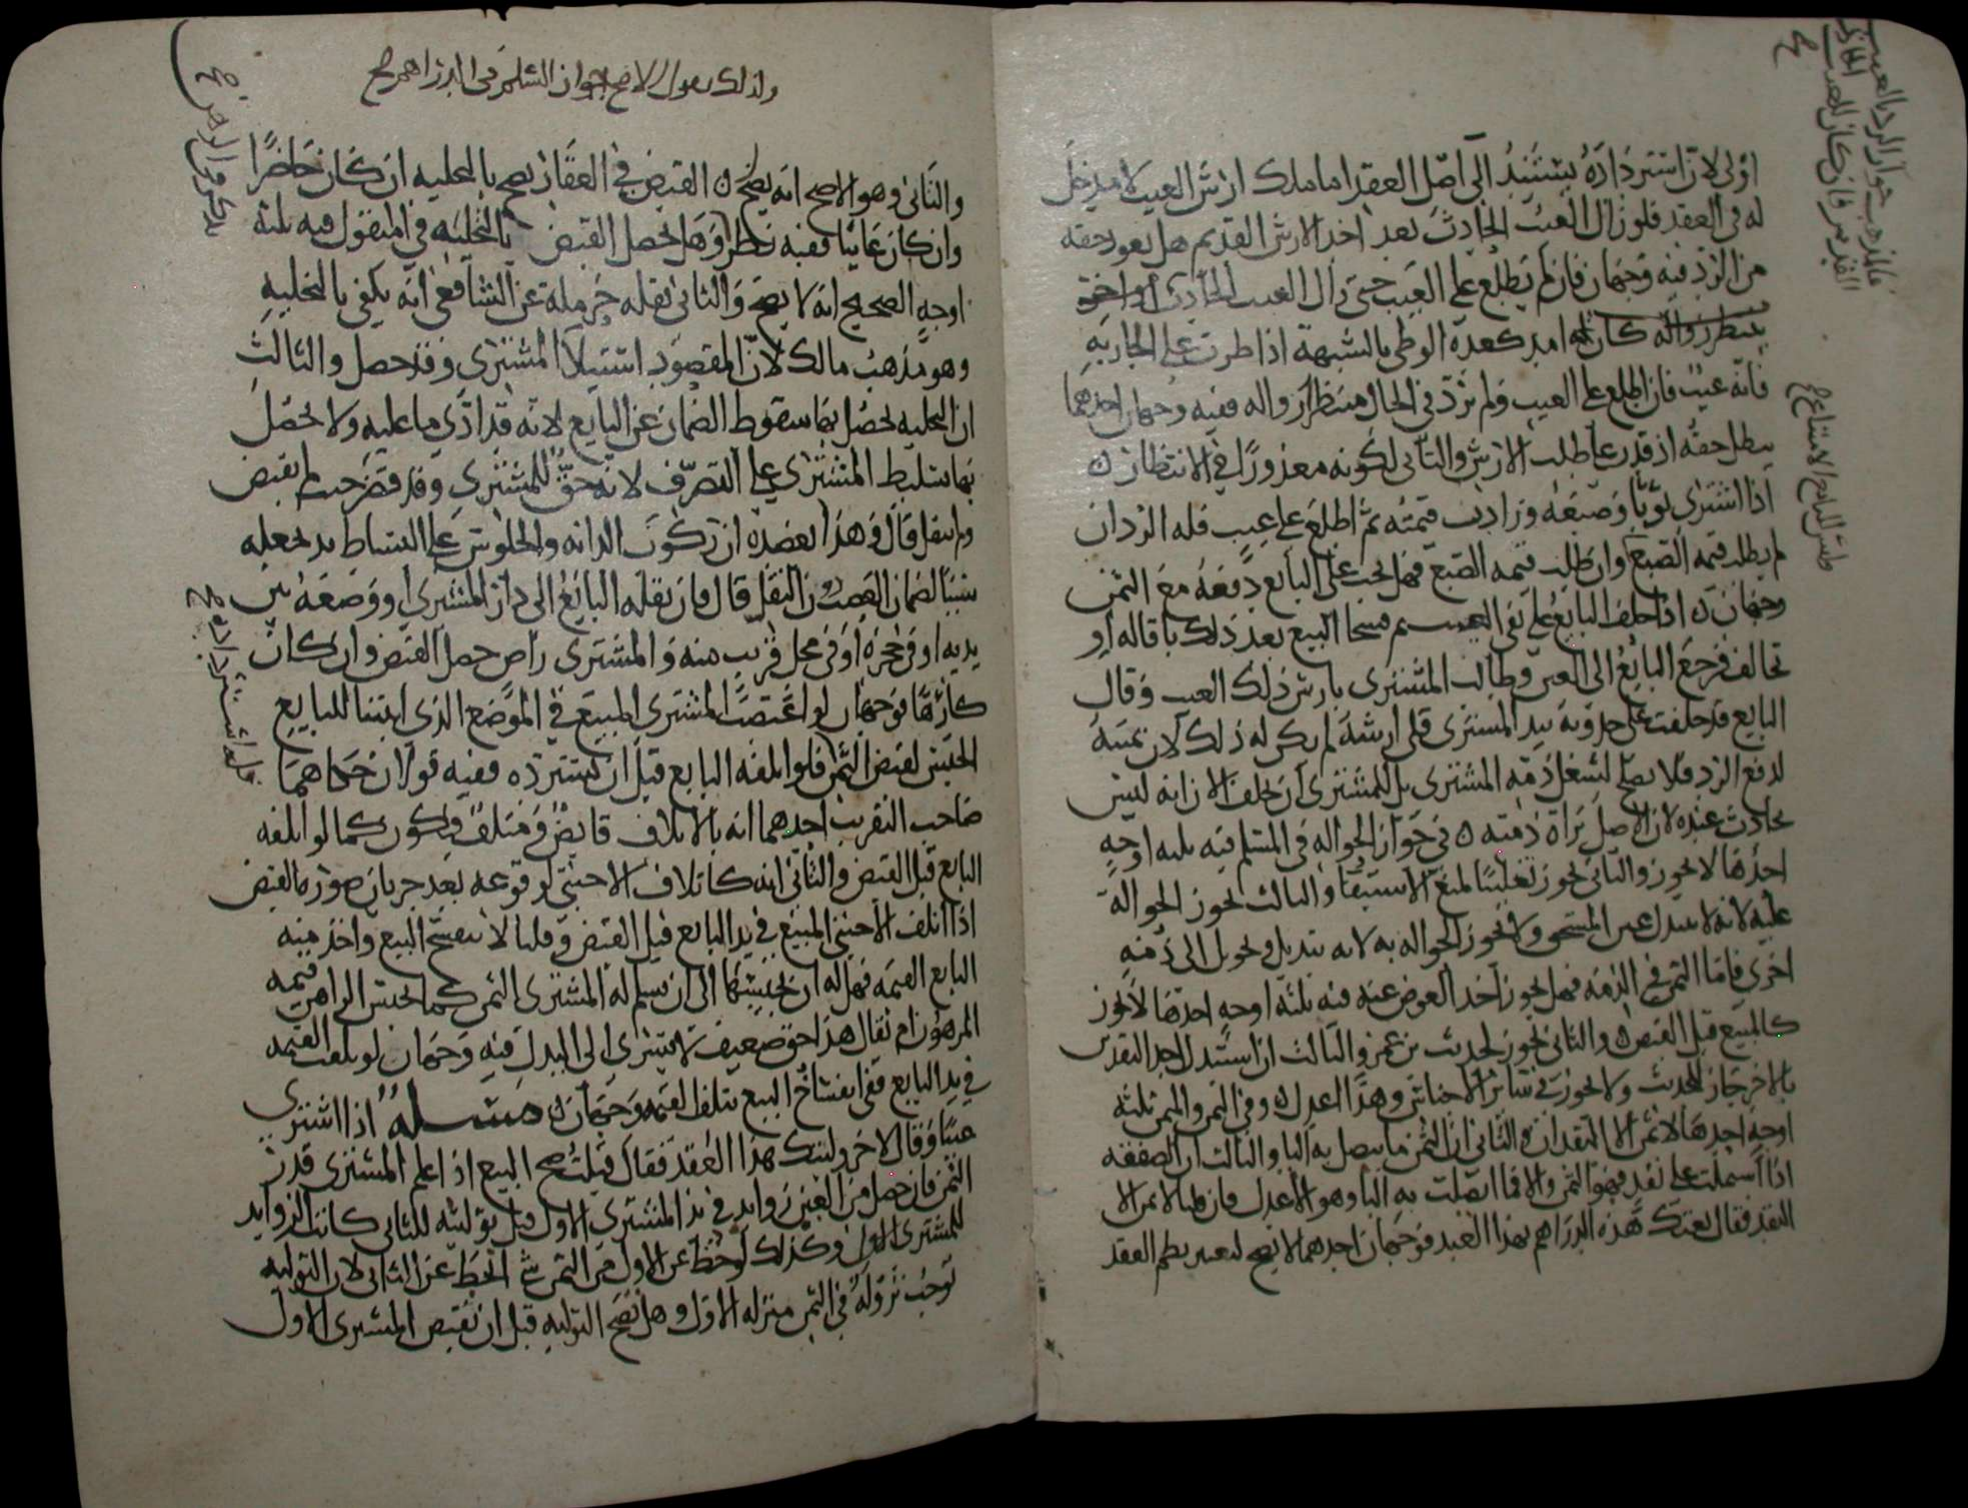 اولى لان استرداده يستند الى اصل العقد اما ملك ارش العيب لا مدخل
له في العقد فلو زال العيب الحادث بعد اخذ الارش القديم هل يعود حقه
من الرد فيه وجهان فان لم يطلع على العيب حتى زال العيب الحادث
ينتظر زواله كان له امد كعدة الوطي بالشبهة اذا طرت على الجارية
فانه عيب فان اطلع على العيب ولم يرد في الحال منتظرا زواله ففيه وجهان احدهما
يبطل حقه اذ قدر على طلب الارش والثاني لكونه معذورا في الانتظار
اذا اشترى ثوبا وصبغه وزادت قيمته ثم اطلع على عيب فله الرد ان
لم يطلب قيمة الصبغ وان طلب قيمة الصبغ فهل يجب على البايع دفعه مع الثمن
وجهان اذا حلف البايع على نفي العيب ثم فسخا البيع بعد ذلك باقالة او
تحالف فرجع البايع الى العين وطالب المشترى بارش ذلك العيب وقال
البايع قد حلفت على حدوثه بيد المشترى فلى ارشه لم يكن له ذلك لان يمينه
لدفع الرد فلا يصلح لشغل ذمة المشترى بل للمشترى ان يحلف الان انه ليس
بحادث عنده لان الاصل براة ذمته في جواز الحوالة في المسلم فيه ثلثة اوجه
احدها لا يجوز والثاني يجوز تغليبا لمعنى الاستيفا والثالث يجوز الحوالة
عليه لانه لا يتبدل عين المستحق ولا يجوز الحوالة به لانه تبديل وتحويل الى ذمة
اخرى فاما الثمن في الذمة فهل يجوز اخذ العوض عنه فيه ثلثة اوجه احدها لا يجوز
كالمبيع قبل القبض والثاني يجوز لحديث بن عمر والثالث ان استبدل احد النقدين
بالاخر جاز للحديث ولا يجوز في سائر الاجناس وهذا اعدل وفي الثمن والمثمن ثلثة
اوجه احدها لا ثمن الا النقدان والثاني ان الثمن ما يتصل به البا والثالث ان الصفقة
اذا اشتملت على نقد فهو الثمن والا فما اتصلت به البا وهو الاعدل فان قلنا لا ثمن الا
النقد فقال بعتك هذه الدراهم بهذا العبد فوجهان احدهما لا يصح لتغيير نظم العقد
ولذلك نقول الاصح جواز السلم في الدراهم صح
والثاني وهو الاصح انه يصح القبض في العقار يصح بالتخلية ان كان حاضرا
وان كان غايبا ففيه نظر وهل يحصل القبض بالتخلية في المنقول فيه ثلثة
اوجه الصحيح انه لا يصح والثاني نقله حرملة عن الشافعي انه يكفي بالتخلية
وهو مذهب مالك لان المقصود استيلا المشترى وقد حصل والثالث
ان التخلية يحصل بها سقوط الضمان عن البايع لانه قد ادى ما عليه ولا يحصل
بها تسليط المشترى على التصرف لانه حق للمشترى وقد قصر حيث لم يقبض
ولم ينقل قال وهذا يعضده ان ركوب الدابة والجلوس على البساط قد يجعله
سببا لضمان الغصب دون النقل قال فان نقله البايع الى دار المشترى او وضعه بين
يديه او في حجره او في محل قريب منه والمشترى راض حصل القبض وان كان
كارها فوجهان لو اغتصب المشترى المبيع في الموضع الذى اثبتنا للبايع
الحبس لقبض الثمن فلو اتلفه البايع قبل ان يسترده ففيه قولان حكاهما
صاحب التقريب احدهما انه بالاتلاف قابض ومتلف ويكون كما لو اتلفه
البايع قبل القبض والثاني انه كاتلاف الاجنبي لوقوعه بعد جريان صورة القبض
اذا اتلف الاجنبي المبيع في يد البايع قبل القبض وقلنا لا ينفسخ البيع واخذ منه
البايع القيمة فهل له ان يحبسها الى ان يسلم له المشترى الثمن كما يحبس الراهن قيمة
المرهون ام يقال هذا حق ضعيف لا يسرى الى البدل فيه وجهان لو تلفت القيمة
في يد البايع ففى انفساخ البيع بتلف القيمة وجهان مسئلة اذا اشترى
عينا وقال لاخر وليتك هذا العقد فقال قبلت صح البيع اذا علم المشترى قدر
الثمن فان حصل من العين زوايد في يد المشترى الاول قبل توليته للثاني كانت الزوايد
للمشترى الاول وكذلك لو حط عن الاول من الثمن شي انحط عن الثاني لان التولية
توجب نزوله في الثمن منزلة الاول وهل تصح التولية قبل ان يقبض المشترى الاول